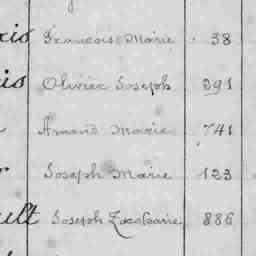 xis François Marie 38
is Olivier Joseph 291
Amand Marie 741
r Joseph Marie 123
ult Joseph Zacharie 886